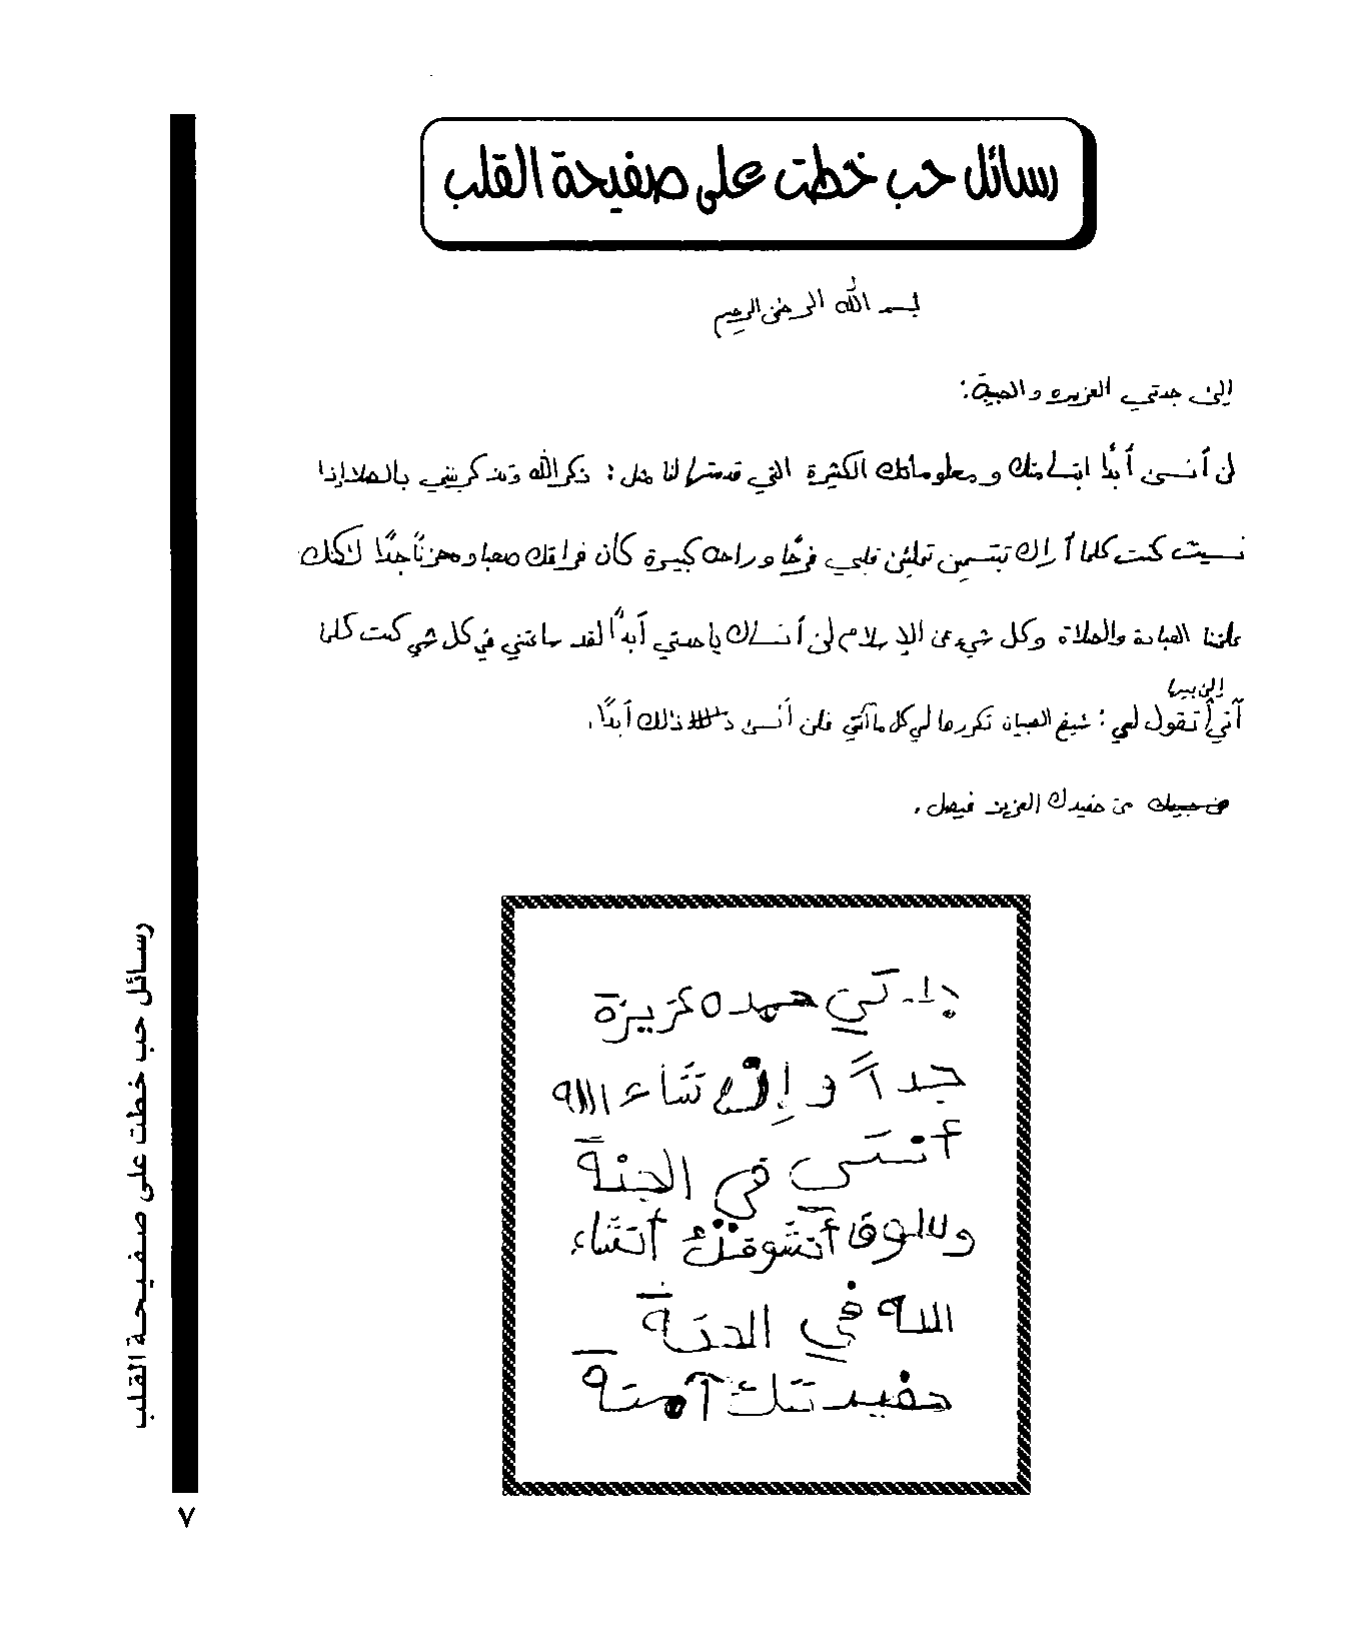 رسائل حب خطت على صفيحة القلب
بسم الله الرحمن الرحيم
إلى جدتي العزيزه والحبيبة:
لن أنسى أبدًا ابتسامتك ومعلوماتك الكثيرة التي قدمتيها لنا مثل: ذكر الله وتذكرينني بالصلا إذا
نسيت كنت كلما أراك تبتسمين تملئين قلبي فرحًا وراحه كبيرة كان فراقك صعبا ومحزناً جدًا لكنك
علمتنا العبادة والصلاة وكل شيء عن الإسلام لن أنساك يا جدتي أبدًا لقد ساعتني في كل شي كنت كلما
إلى بيتها
آتي تقول لي: شيخ الصبيان تكررها لي كل ما آتي فلن أنسى ذلك أبدًا.
من حفيدك العزيز فيصل.
حمده عزيزة
جداً و إن شاء الله
أنتي في الجنة
أتشوقلك أنشاء
الله في الجنة
حفيدتك آمنة
رسائل حب خطت على صفيحة القلب
٧